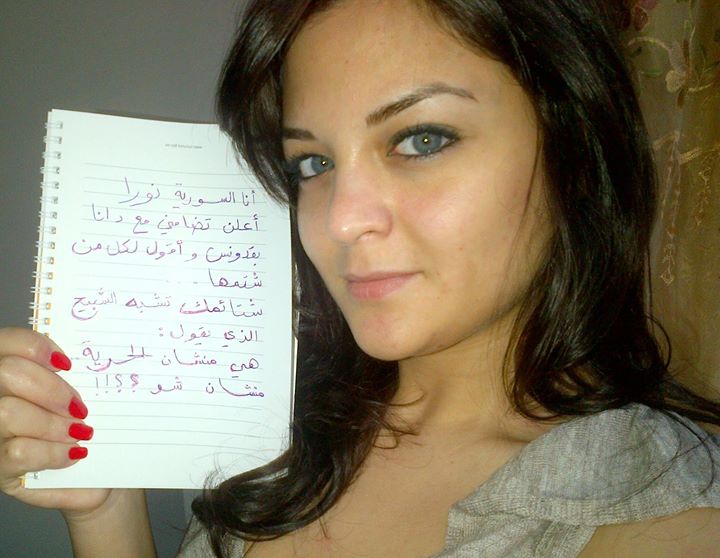 أنا السورية نورا
أعلن تضامني مع دانا
بقدونس و أقول لكل من
شتمها ...
شتائمك تشبه الشبيح
الذي يقول:
هي منشان الحرية..
منشان شو ؟؟؟!!